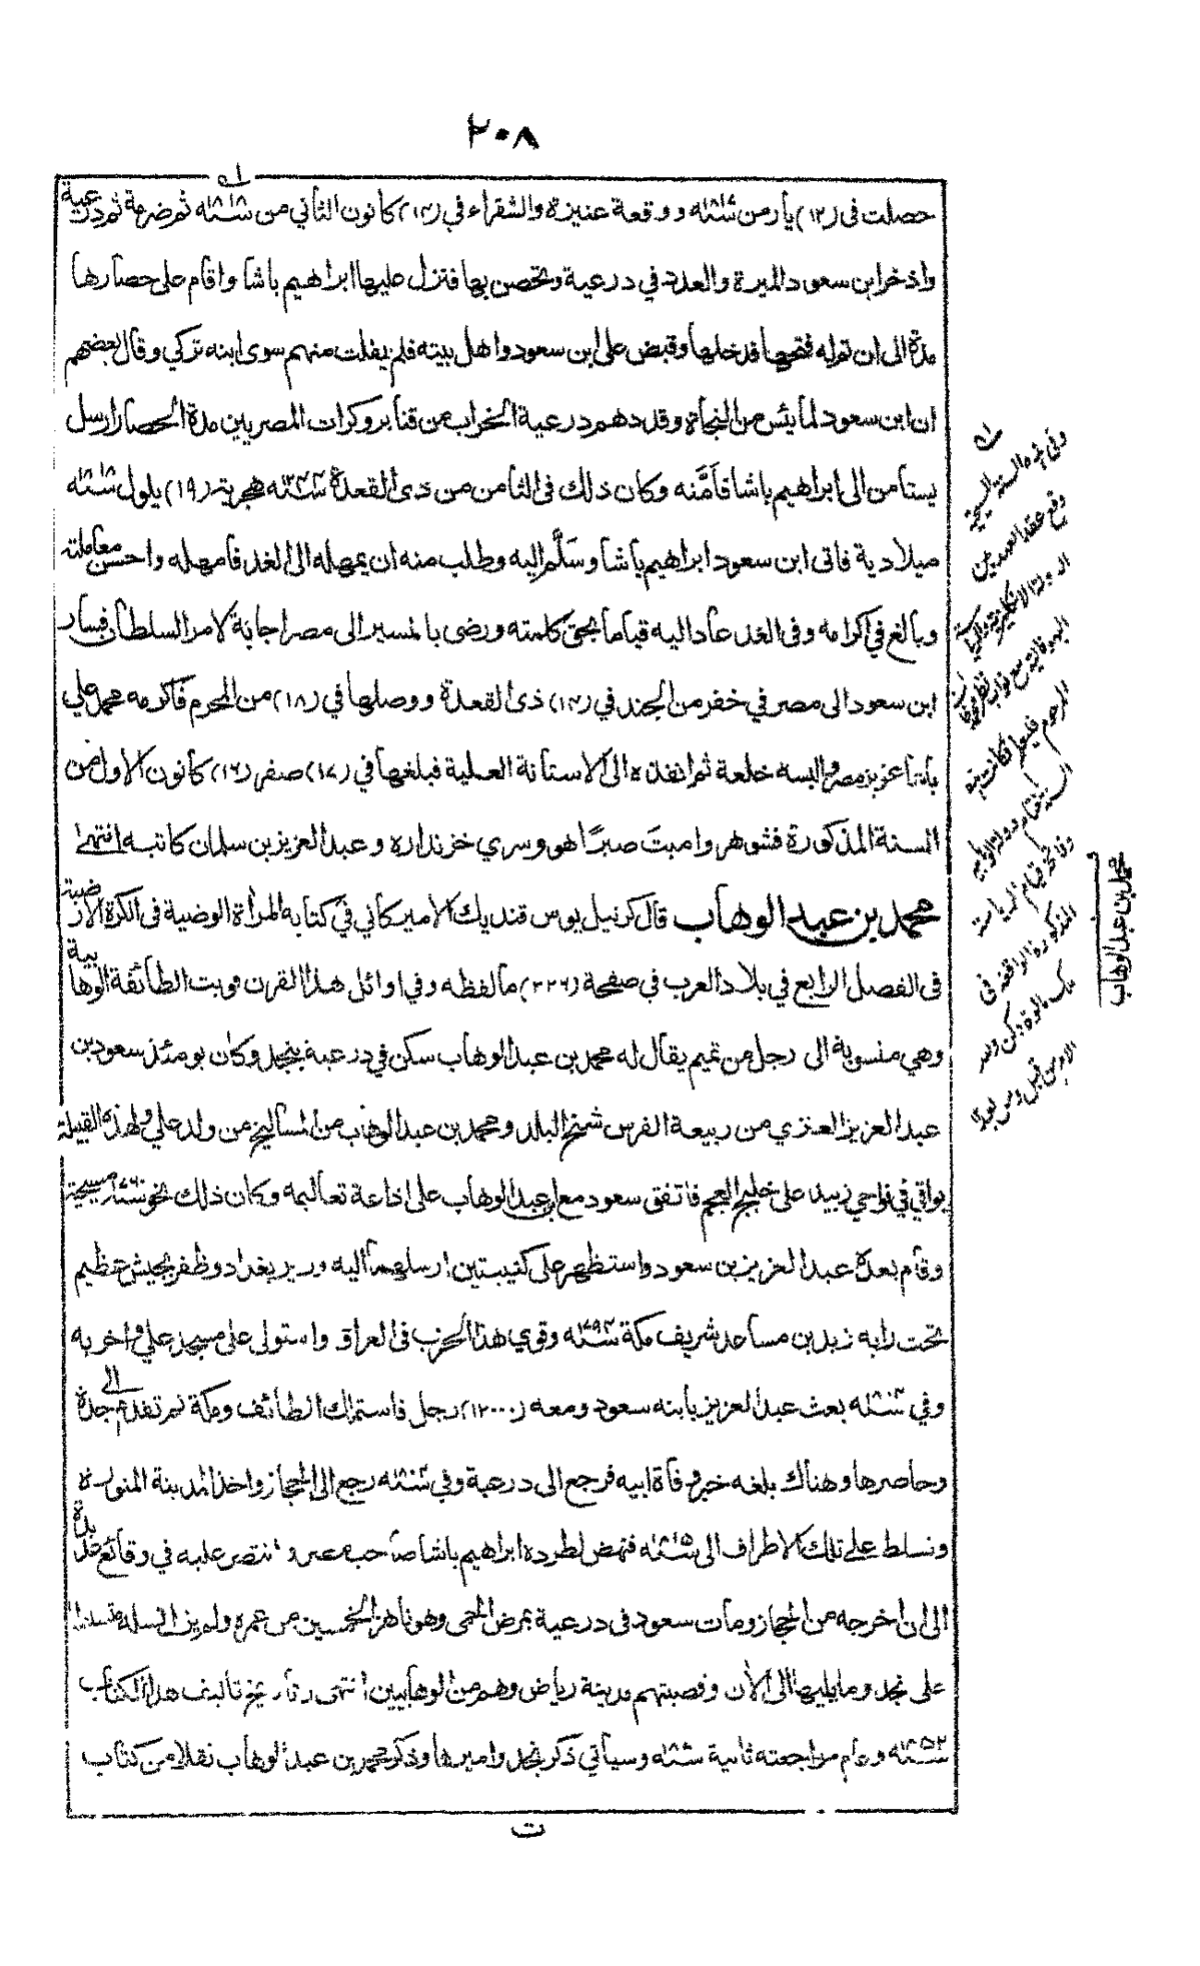 ٢٠٨
حصلت في (١٢) يار من سنة ووقعة عنيزة والشقراء في (١٤) كانون الثاني من سنة ١٨١٨ ثم ضرمة ثم درعية
واذخر ابن سعود الميرة والعدد في درعية وتحصن بها فنزل عليها ابراهيم باشا واقام على حصارها
مدة الى ان توله فتحها فدخلها وقبض على ابن سعود واهل بيته فلم يفلت منهم سوى ابنه تركي وقال بعضهم
ان ابن سعود لما يئس من النجاة وقد دهم درعية الخراب من قنابر وكرات المصريين مدة الحصار ارسل
يستامن الى ابراهيم باشا فأمَّنه وكان ذلك في الثامن من ذى القعدة سنة ١٢٣٣ هجرية (١٩) يلول سنة ١٨١٨
ميلادية فاتى ابن سعود ابراهيم باشا وسَلَّم اليه وطلب منه ان يمهله الى الغد فامهله واحسن معاملته
وبالغ في اكرامه وفى الغد عاد اليه قياما بحق كلمته ورضى بالمسير الى مصر اجابة لامر السلطان فسار
ابن سعود الى مصر في خفر من الجند في (١٤) ذى القعدة ووصلها في (١٨) من المحرم فاكرمه محمد علي
باشا عزيز مصر والبسه خلعة ثم انفذه الى الاستانة العلية فبلغها في (١٧) صفر (١٦) كانون الاول من
السنة المذكورة فشوهر واميتَ صبرًا هو وسري خزنداره وعبد العزيز بن سلمان كاتبه انتهى
محمد بن عبد الوهاب قال كرنيل يوس فنديك الاميركاني في كتابه المرأة الوضية في الكرة الارضية
فى الفصل الرابع في بلاد العرب في صفحة (٢٢٦) ما لفظه وفي اوائل هذا القرن قويت الطائفة الوهابية
وهي منسوبة الى رجل من تميم يقال له محمد بن عبد الوهاب سكن في درعية بنجد وكان يومئذ سعود بن
عبد العزيز العنزي من ربيعة الفرس شيخ البلد ومحمد بن عبد الوهاب من المساليخ من ولد علي ولهذه القبيلة
بواقي في نواحي زبيد على خليج العجم فاتفق سعود مع ابن عبد الوهاب على اذاعة تعاليمه وكان ذلك نحو سنة ١٧٦٠ مسيحية
وقام بعده عبد العزيز بن سعود واستظهر على كتيبتين ارسلهما اليه وزير بغداد وظفر بجيش عظيم
تحت راية زيد بن مساعد شريف مكة سنة ١٧٩٢ وقوي هذا الحزب فى العراق واستولى على مسجد علي واخربه
وفي سنة بعث عبد العزيز بابنه سعود ومعه (١٢٠٠٠) رجل فاستملك الطائف ومكة ثم تقدم الى جدة
وحاصرها وهناك بلغه خبر وفاة ابيه فرجع الى درعية وفي سنة رجع الى الحجاز واخذ المدينة المنورة
وتسلط على تلك الاطراف الى سنة ١٨١٥ فنهض لطرده ابراهيم باشا صاحب مصر وانتصر عليه في وقائع عديدة
الى ان اخرجه من الحجاز ومات سعود فى درعية بمرض الحمى وهو ناهز الخمسين من عمره ولم يزل نسله متسلطا
على نجد وما يليها الى الآن وقصبتهم مدينة رياض وهم من الوهابيين انتهى وتاريخ تاليف هذا الكتاب
سنة ١٨٥٢ وعام مراجعته ثانية سنة وسيأتي ذكر نجد واميرها وذكر محمد بن عبد الوهاب نقلا من كتاب
ت
وفى هذه السنة المسيحية
وقع عقد العهد بين
الدولة الانكليزية
المذكورة الواقعة في
محمد بن عبد الوهاب